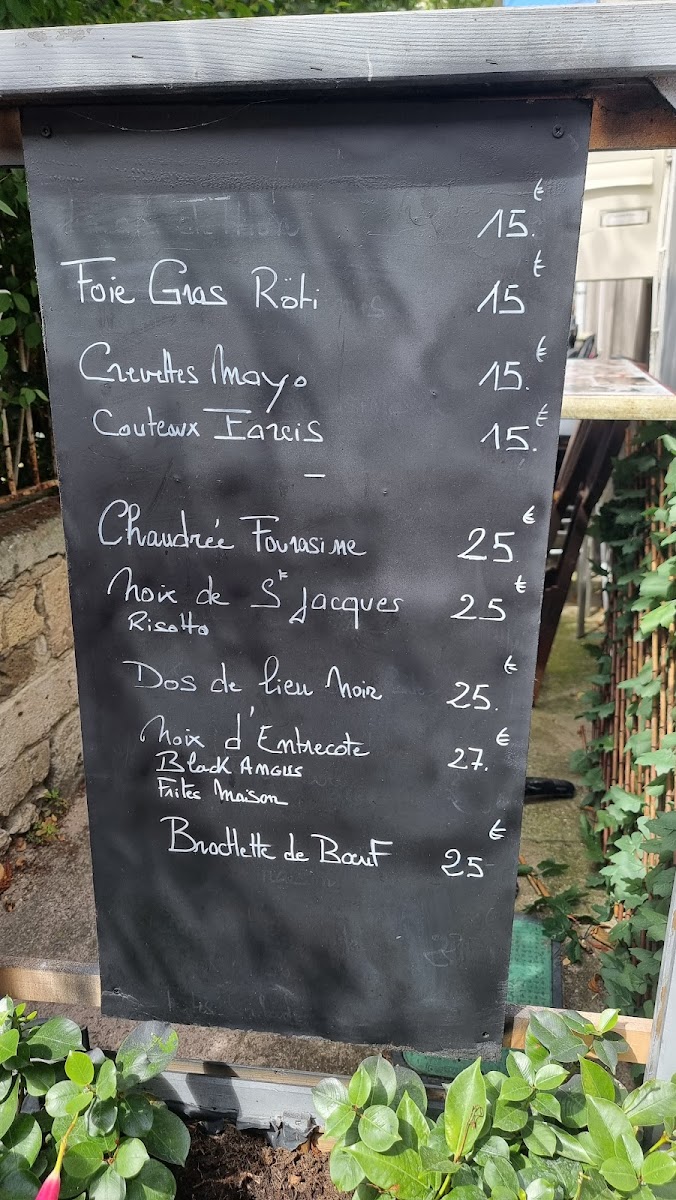 15.€
Foie Gras Röti 15€
Crevettes Mayo 15.€
Couteaux Farcis 15.€
Chaudrée Fourasine 25€
Noix de St Jacques 25€
Risotto
Dos de lieu Noir 25.€
Noix d'Entrecote 27.€
Black Angus
Frites Maison
Brochette de Bœuf 25€